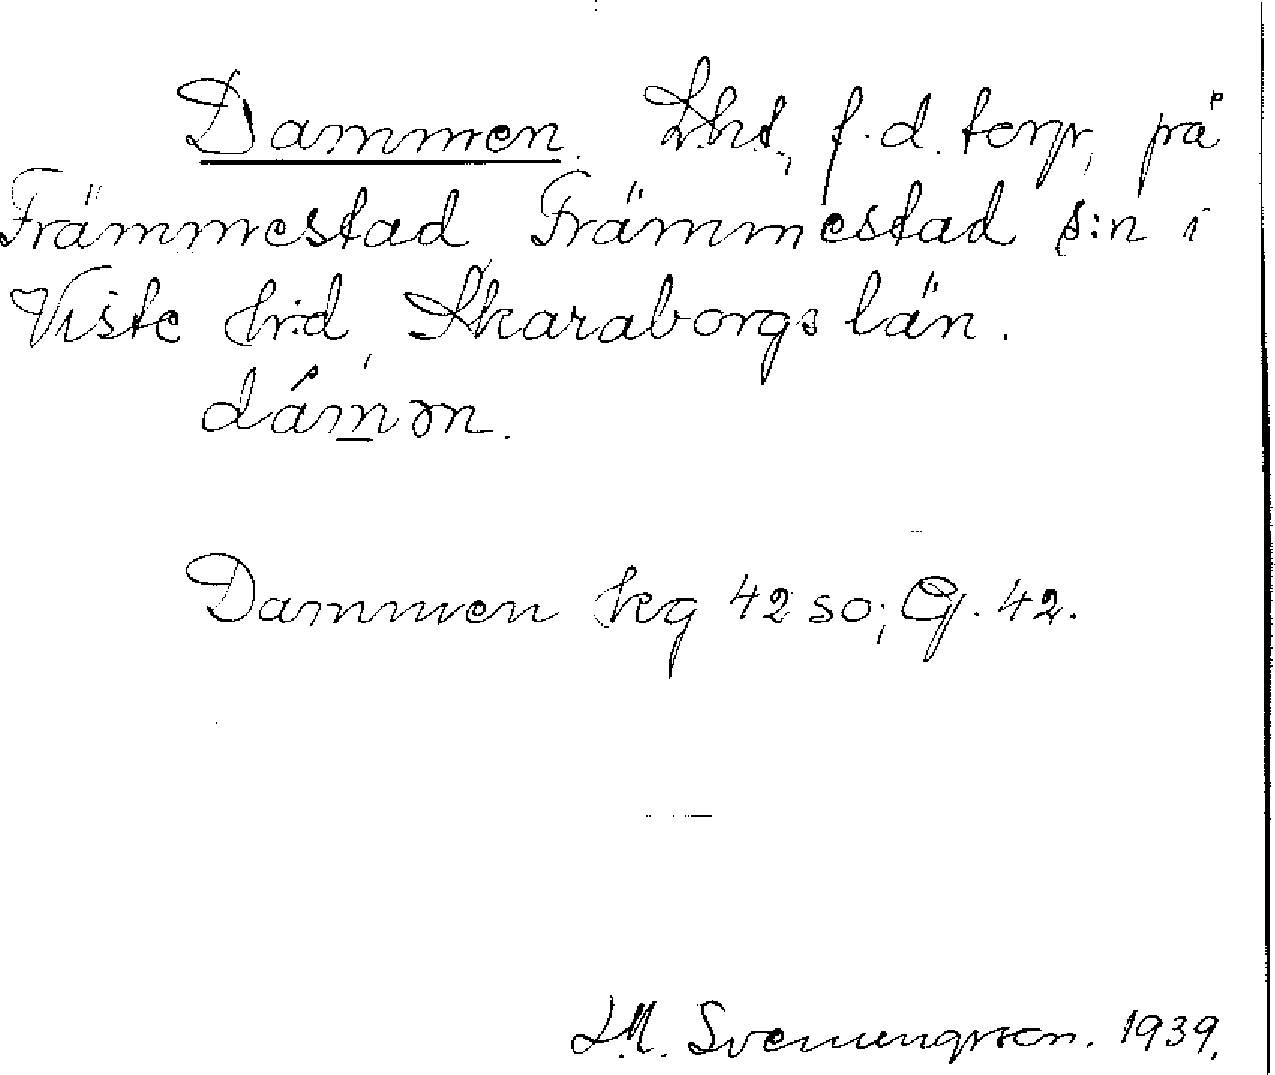 Dammen. Lht, f.d. torp, på
Främmestad Främmestad s:n i
Viste hd, Skaraborgs län.
dám̲ən.
Dammen kg 42 so; G. 42.
Svenungsson. 1939.